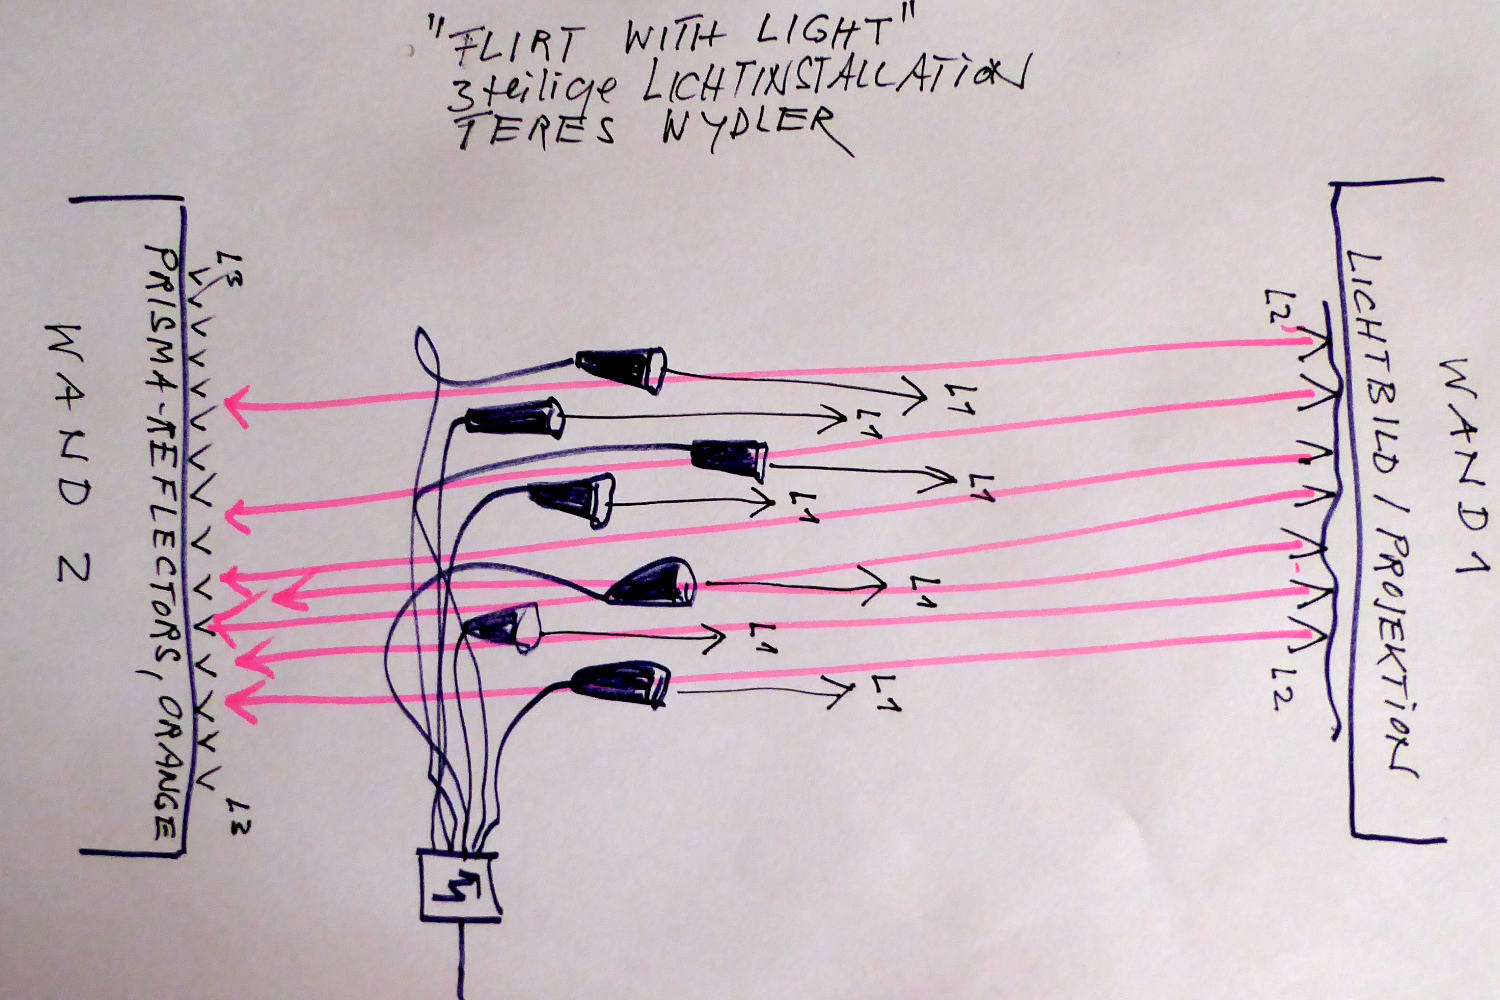 "FLIRT WITH LIGHT"
3teilige LICHTINSTALLATION
TERES WYDLER
WAND 2
PRISMA-REFLECTORS, ORANGE
L3
L3
L1
L1
L1
L1
L1
L1
L1
L2
L2
LICHTBILD / PROJEKTION
WAND 1